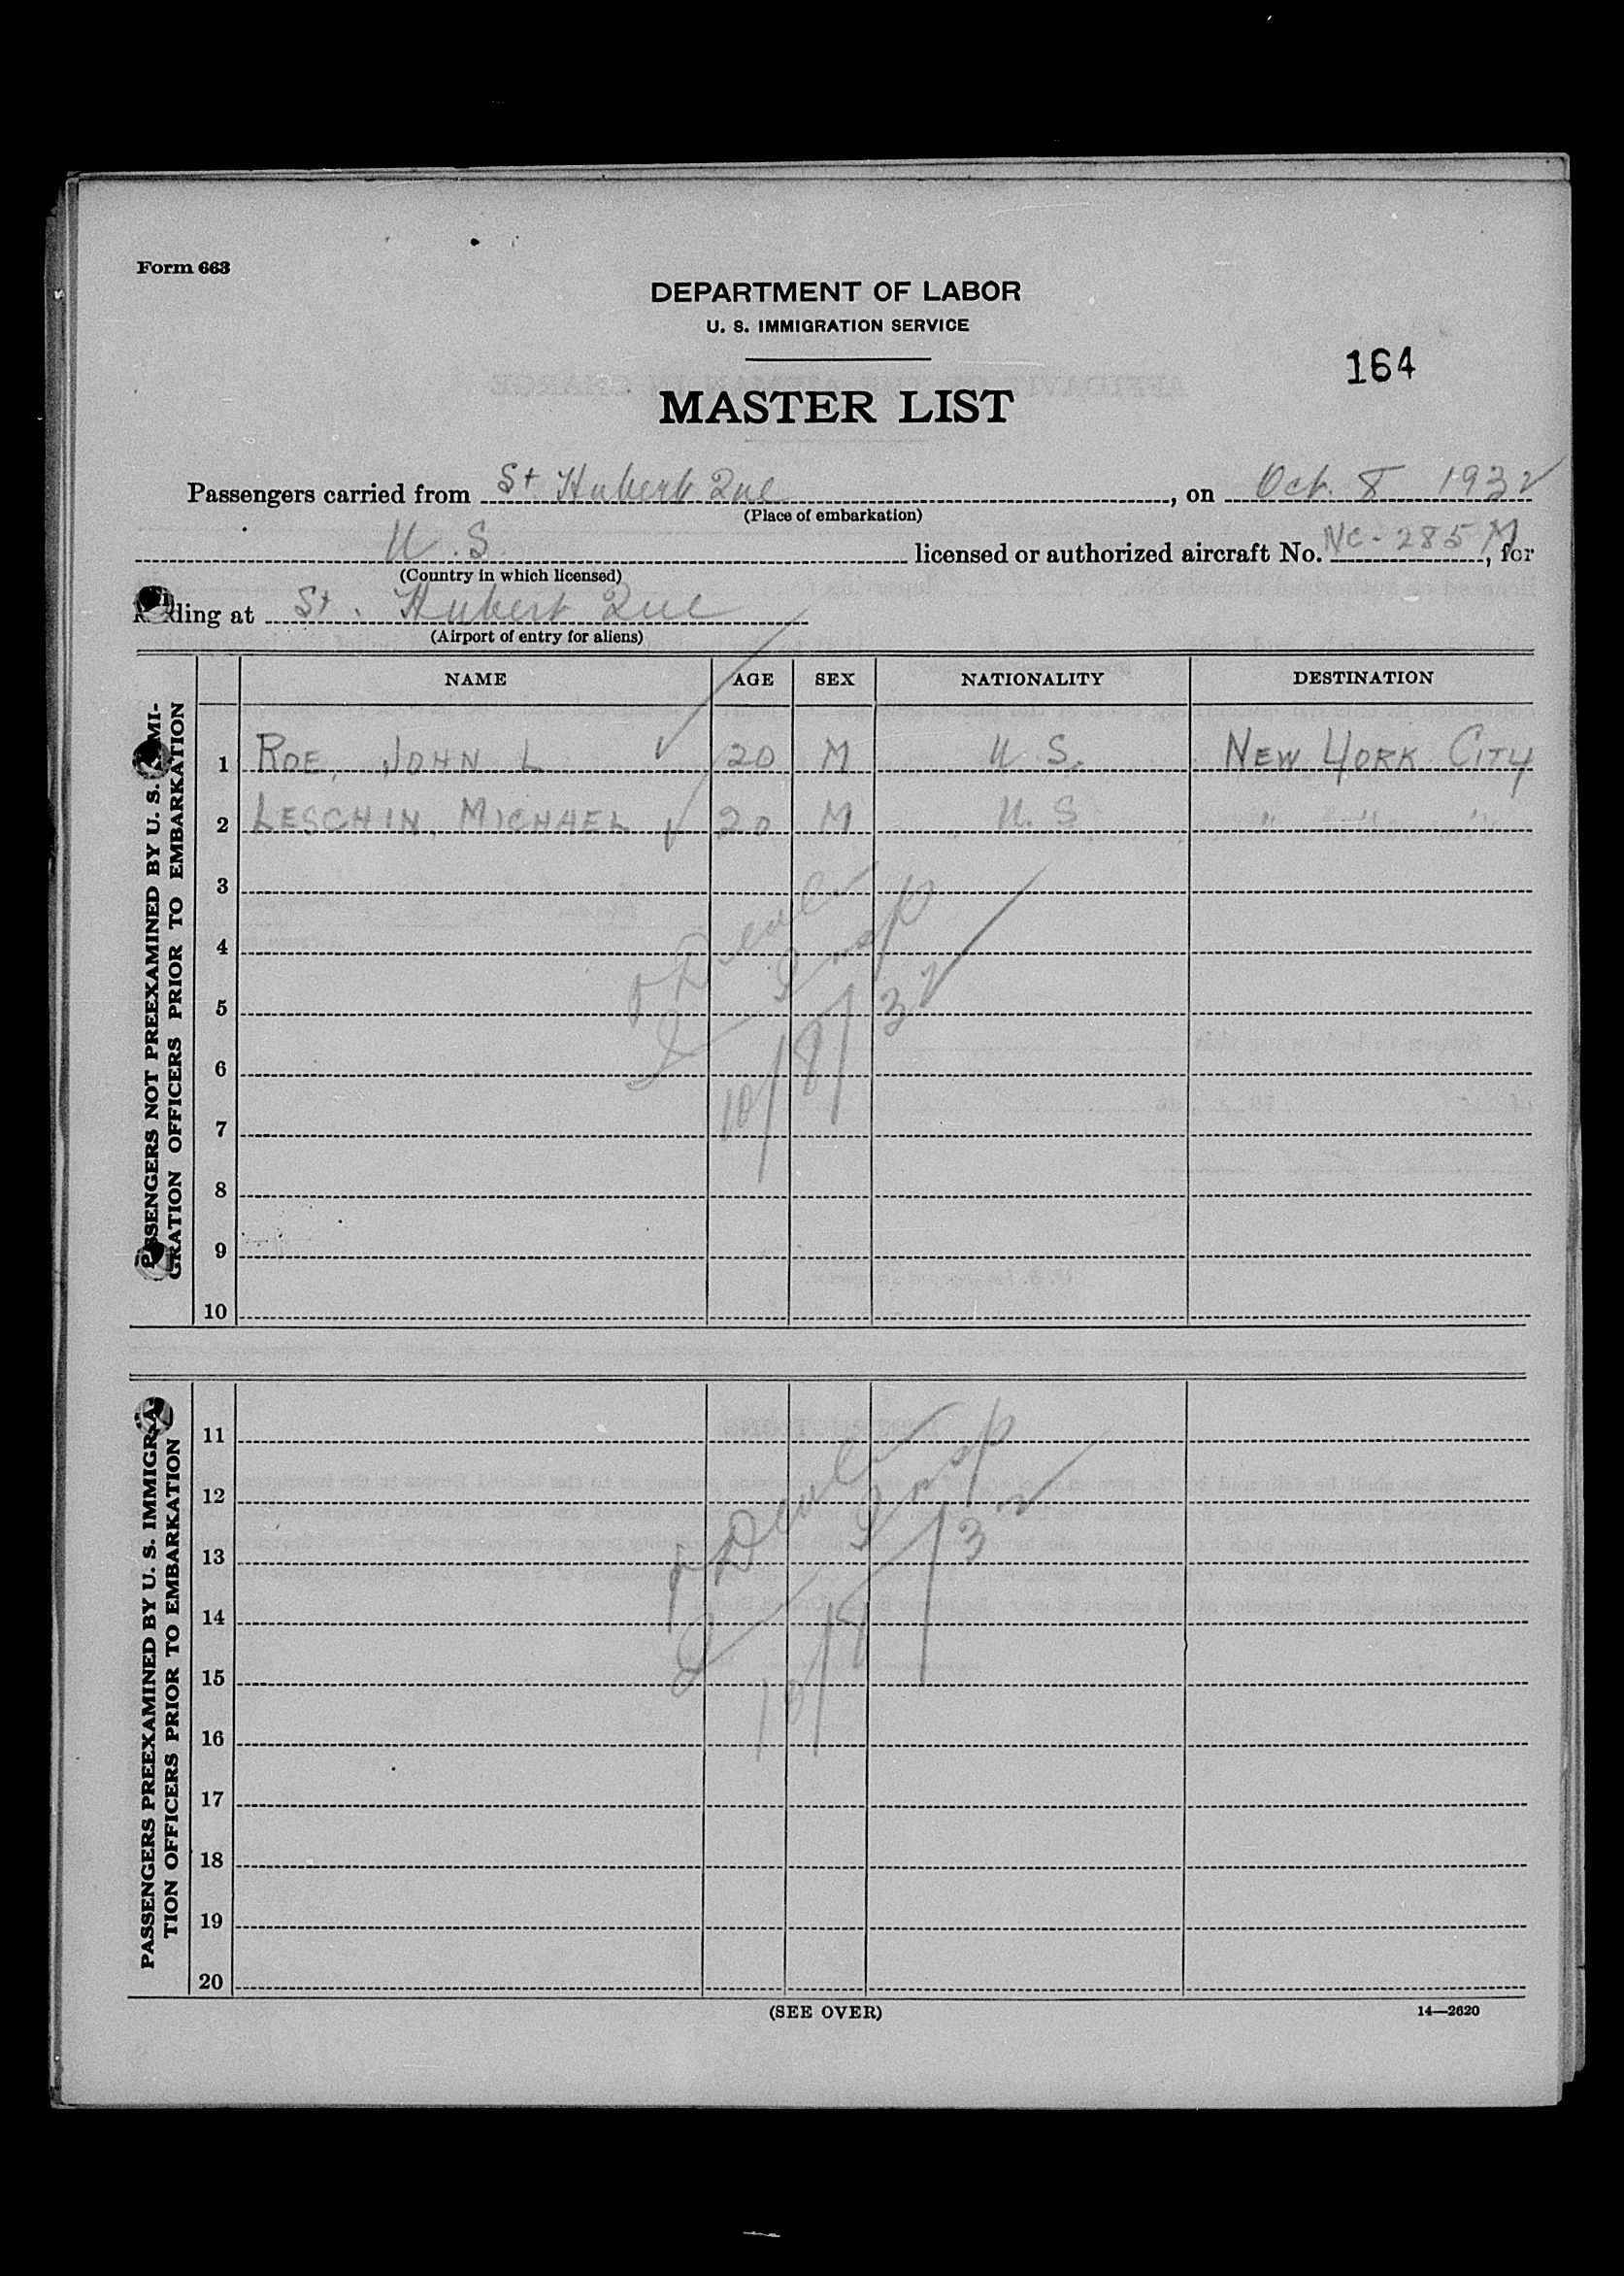 Form 663
DEPARTMENT OF LABOR
U. S. IMMIGRATION SERVICE
164
MASTER LIST
Passengers carried from St Hubert Que, on Oct. 8 1932
(Place of embarkation)
U.S. licensed or authorized aircraft No. NC-285M, for
(Country in which licensed)
ding at St. Hubert Que
(Airport of entry for aliens)
NAME AGE SEX NATIONALITY DESTINATION
PASSENGERS NOT PREEXAMINED BY U. S. IMMI-
GRATION OFFICERS PRIOR TO EMBARKATION
1 ROE, JOHN L ✓ 20 M U S. NEW YORK CITY
2 LESCHIN, MICHAEL ✓ 20 M U.S " "
3
4
5
6
7
8
9
10
Insp
10/8/32
PASSENGERS PREEXAMINED BY U. S. IMMIGRA-
TION OFFICERS PRIOR TO EMBARKATION
11
12
13
14
15
16
17
18
19
20
Insp
10/8/32
(SEE OVER)
14—2620